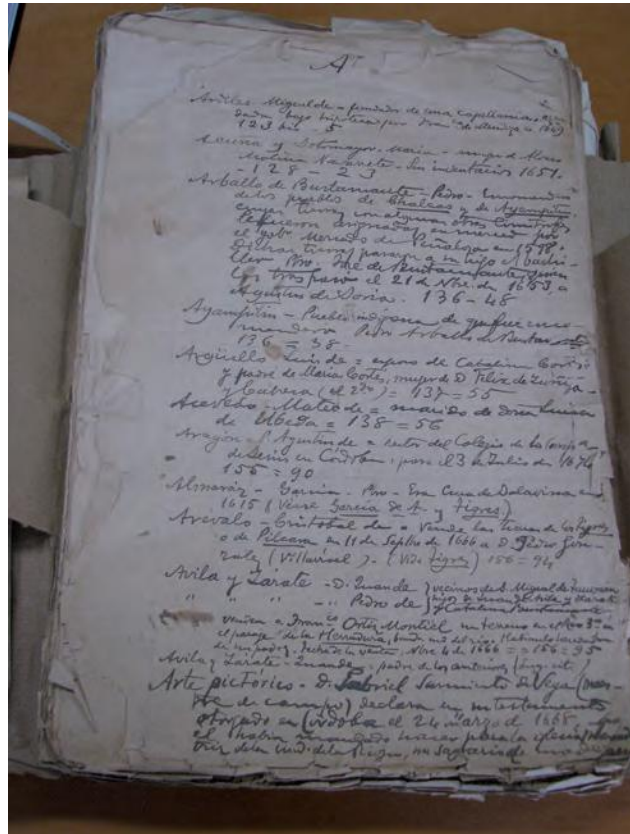 A
Aviles - Miguel de = fundador de una Capellania,
bajo hipoteca por de 1649
123 bis - 5
Acuña y Sotomayor - Maria - mujer de Alonso
Molina Navarrete - Sin inventarios 1651.
- 128 - 23
Arballo de Bustamante - Pedro - Encomendero
de los pueblos de Chalacas y de Ayampitin
cuyas tierras con algunas otras
le fueron asignadas en merced por
el gobr Mercado de Peñaloza en 1598.
Dichas tierras pasaron a su hijo el bachi-
ller Pro. José de Bustamante, quien
las traspasó el 21 de Nbre. de 1653 a
Agustin de Doria. 136 - 48
Ayampitin - Pueblo indigena de que fue enco-
mendero Pedro Arballo de Bustamante
136 = 38 -
Argüello Luis de = esposo de Catalina Cortés
y padre de Maria Cortés, mujer de D. Felix de Zúñiga
y Cabrera (el 2do) = 137 = 55
Acevedo - Mateo de = marido de doña Luisa
de Ubeda = 138 = 56
Aragón - P. Agustin de = rector del Colegio de la Compa-
de Jesús en Córdoba, para el 3 de Julio de 1674
155 = 90
Almaráz - Garcia - Pro - Era Cura de en
1615 (Véase Garcia de A. y Tigres.)
Arévalo - Cristobal de = Vende las tierras de los Tigres
o de en 11 de Septbe de 1666 a D. Pedro Gon-
zalez (Villarroel) - (Vide Tigres) 156 = 94
Avila y Zárate - D. Juan de } vecinos de S. Miguel de Tucuman
" " " - " Pedro de } hijos de Juan de Avila y Zarate y Catalina Bustamante
venden a Franco Ortiz Montiel un terreno en el Rio 3º en
el paraje de la Herradura, banda sud del rio.
de su padre. Fecha de la venta, Nbre. 4 de 1666 = = 156 = 95
Avila y Zárate - Juan de - padre de los anteriores (Luge cit.)
Arte pictórico - D. Gabriel Sarmiento de Vega (maes-
tre de campo) declara en su testamento
otorgado en Córdoba el 24 marzo de 1668, que
él habia mandado hacer para la iglesia
triz de la ciud. de la Rioja, un Sagrario de